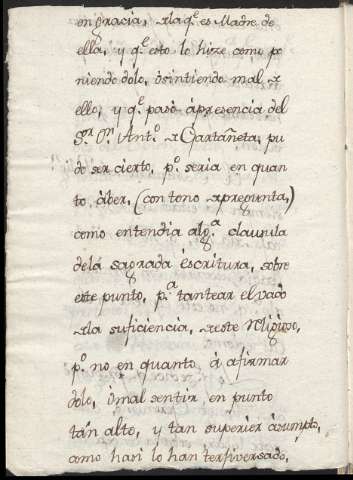 en gracia, dla q.e es Madre de
ella, y q.e esto lo hize como po
niendo dolo, ò sintiendo mal d
ello, y q.e pasó á presencia del
S.or D.n Ant.o d Cartañeta, pu
do ser cierto, p.o seria en quan
to áber, (con tono d pregunta,)
como entendia alg.a clausula
delá sagrada escritura, sobre
este punto, p.a tantear el vado
dla suficiencia, deste Religioso,
p.o no en quanto á afirmar
dolo, ò mal sentir, en punto
tan alto, y tan superior ásumpto,
como hasi lo han tersiversado,